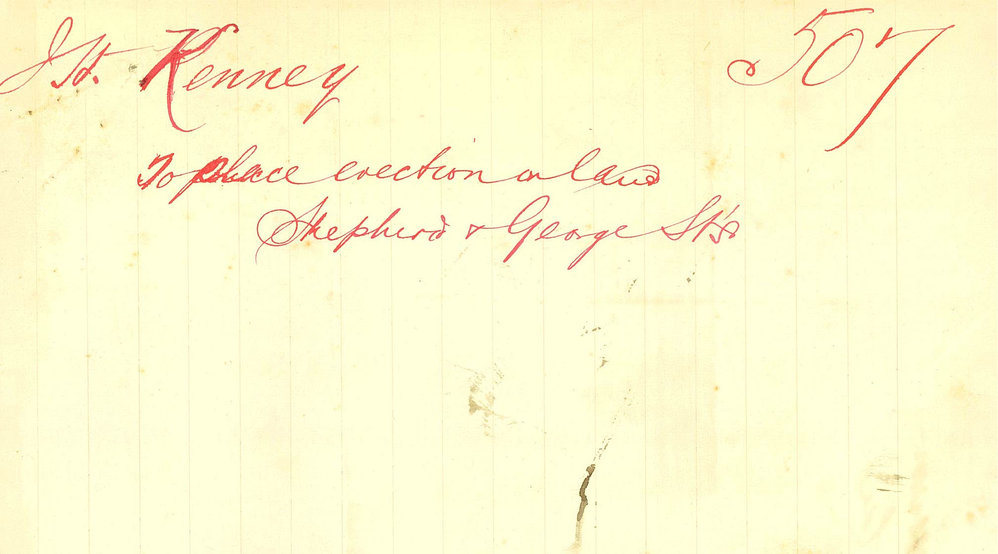 J H. Kenney 507
To place erection on land
Shepherd & George St's